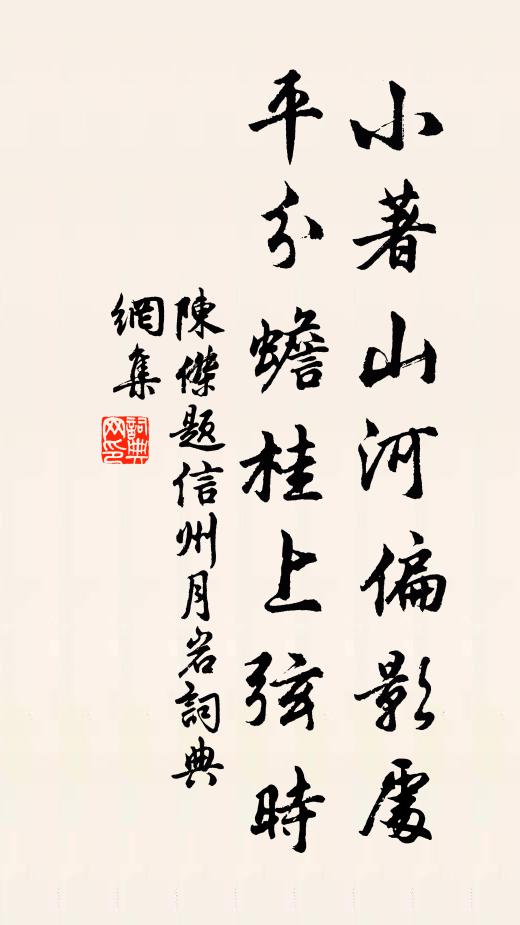 小著山河偏影處
平分蟾桂上弦時
陳傑題信州月岩詞典
網集
詞典
网印